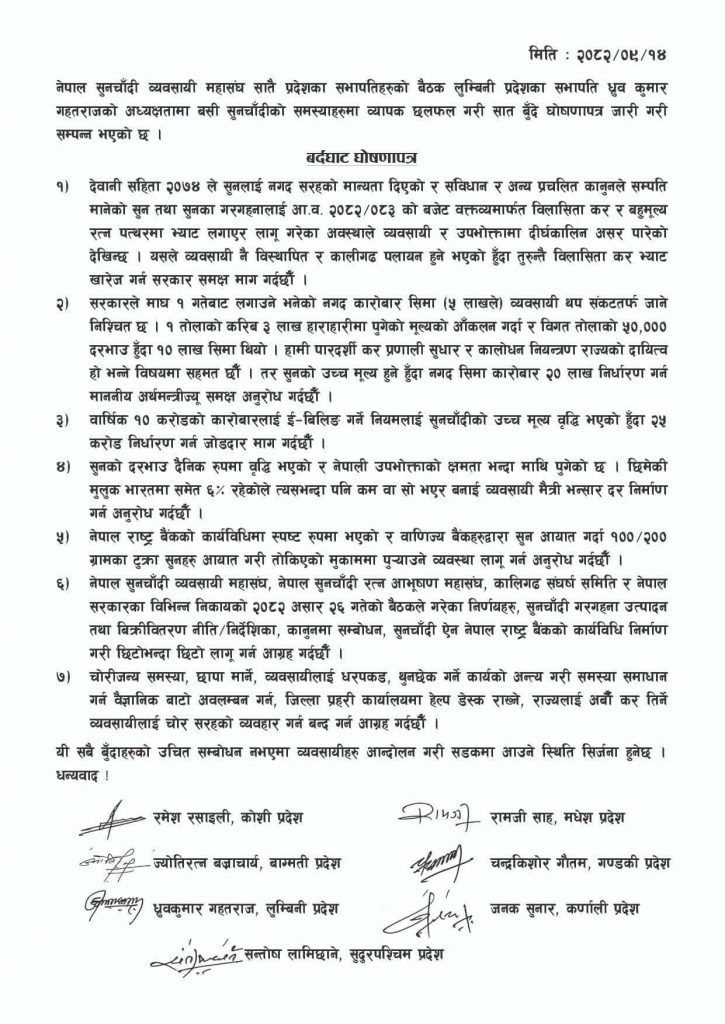 मिति : २०८२/०९/१४
नेपाल सुनचाँदी व्यवसायी महासंघ सातै प्रदेशका सभापतिहरुको बैठक लुम्बिनी प्रदेशका सभापति ध्रुव कुमार
गहतराजको अध्यक्षतामा बसी सुनचाँदीको समस्याहरुमा व्यापक छलफल गरी सात बुँदे घोषणापत्र जारी गरी
सम्पन्न भएको छ ।
बर्दघाट घोषणापत्र
१) देवानी सहिता २०७४ ले सुनलाई नगद सरहको मान्यता दिएको र संविधान र अन्य प्रचलित कानुनले सम्पति
मानेको सुन तथा सुनका गरगहनालाई आ.व. २०८२/०८३ को बजेट वक्तव्यमार्फत विलासिता कर र बहुमूल्य
रत्न पत्थरमा भ्याट लगाएर लागू गरेका अवस्थाले व्यवसायी र उपभोक्तामा दीर्घकालिन असर पारेको
देखिन्छ । यसले व्यवसायी नै विस्थापित र कालीगढ पलायन हुने भएको हुँदा तुरुन्तै विलासिता कर भ्याट
खारेज गर्न सरकार समक्ष माग गर्दछौँ ।
२) सरकारले माघ १ गतेबाट लगाउने भनेको नगद कारोबार सिमा (५ लाखले) व्यवसायी थप संकटतर्फ जाने
निश्चित छ । १ तोलाको करिब ३ लाख हाराहारीमा पुगेको मूल्यको आँकलन गर्दा र विगत तोलाको ५०,०००
दरभाउ हुँदा १० लाख सिमा थियो । हामी पारदर्शी कर प्रणाली सुधार र कालोधन नियन्त्रण राज्यको दायित्व
हो भन्ने विषयमा सहमत छौँ । तर सुनको उच्च मूल्य हुने हुँदा नगद सिमा कारोबार २० लाख निर्धारण गर्न
माननीय अर्थमन्त्रीज्यू समक्ष अनुरोध गर्दछौँ ।
३) वार्षिक १० करोडको कारोबारलाई ई-बिलिङ गर्ने नियमलाई सुनचाँदीको उच्च मूल्य वृद्धि भएको हुँदा २५
करोड निर्धारण गर्न जोडदार माग गर्दछौँ ।
४) सुनको दरभाउ दैनिक रुपमा वृद्धि भएको र नेपाली उपभोक्ताको क्षमता भन्दा माथि पुगेको छ । छिमेकी
मुलुक भारतमा समेत ६% रहेकोले त्यसभन्दा पनि कम वा सो भएर बनाई व्यवसायी मैत्री भन्सार दर निर्माण
गर्न अनुरोध गर्दछौँ ।
५) नेपाल राष्ट्र बैंकको कार्यविधिमा स्पष्ट रुपमा भएको र वाणिज्य बैंकहरुद्वारा सुन आयात गर्दा १००/२००
ग्रामका टुक्रा सुनहरु आयात गरी तोकिएको मुकाममा पुऱ्याउने व्यवस्था लागू गर्न अनुरोध गर्दछौँ ।
६) नेपाल सुनचाँदी व्यवसायी महासंघ, नेपाल सुनचाँदी रत्न आभूषण महासंघ, कालिगढ संघर्ष समिति र नेपाल
सरकारका विभिन्न निकायको २०८२ असार २६ गतेको बैठकले गरेका निर्णयहरु, सुनचाँदी गरगहना उत्पादन
तथा बिक्रीवितरण नीति/निर्देशिका, कानुनमा सम्बोधन, सुनचाँदी ऐन नेपाल राष्ट्र बैंकको कार्यविधि निर्माण
गरी छिटोभन्दा छिटो लागू गर्न आग्रह गर्दछौँ ।
७) चोरीजन्य समस्या, छापा मार्ने, व्यवसायीलाई धरपकड, थुनछेक गर्ने कार्यको अन्त्य गरी समस्या समाधान
गर्न वैज्ञानिक बाटो अवलम्बन गर्न, जिल्ला प्रहरी कार्यालयमा हेल्प डेस्क राख्ने, राज्यलाई अर्बौँ कर तिर्ने
व्यवसायीलाई चोर सरहको व्यवहार गर्न बन्द गर्न आग्रह गर्दछौँ ।
यी सबै बुँदाहरुको उचित सम्बोधन नभएमा व्यवसायीहरु आन्दोलन गरी सडकमा आउने स्थिति सिर्जना हुनेछ ।
धन्यवाद !
रमेश रसाइली, कोशी प्रदेश रामजी साह, मधेश प्रदेश
ज्योतिरत्न बज्राचार्य, बाग्मती प्रदेश चन्द्रकिशोर गौतम, गण्डकी प्रदेश
ध्रुवकुमार गहतराज, लुम्बिनी प्रदेश जनक सुनार, कर्णाली प्रदेश
सन्तोष लामिछाने, सुदुरपश्चिम प्रदेश